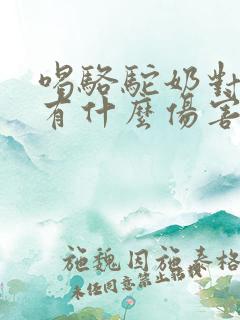 喝駱駝奶對
有什麼傷害
施魏因施泰格
未任同意禁止轉載